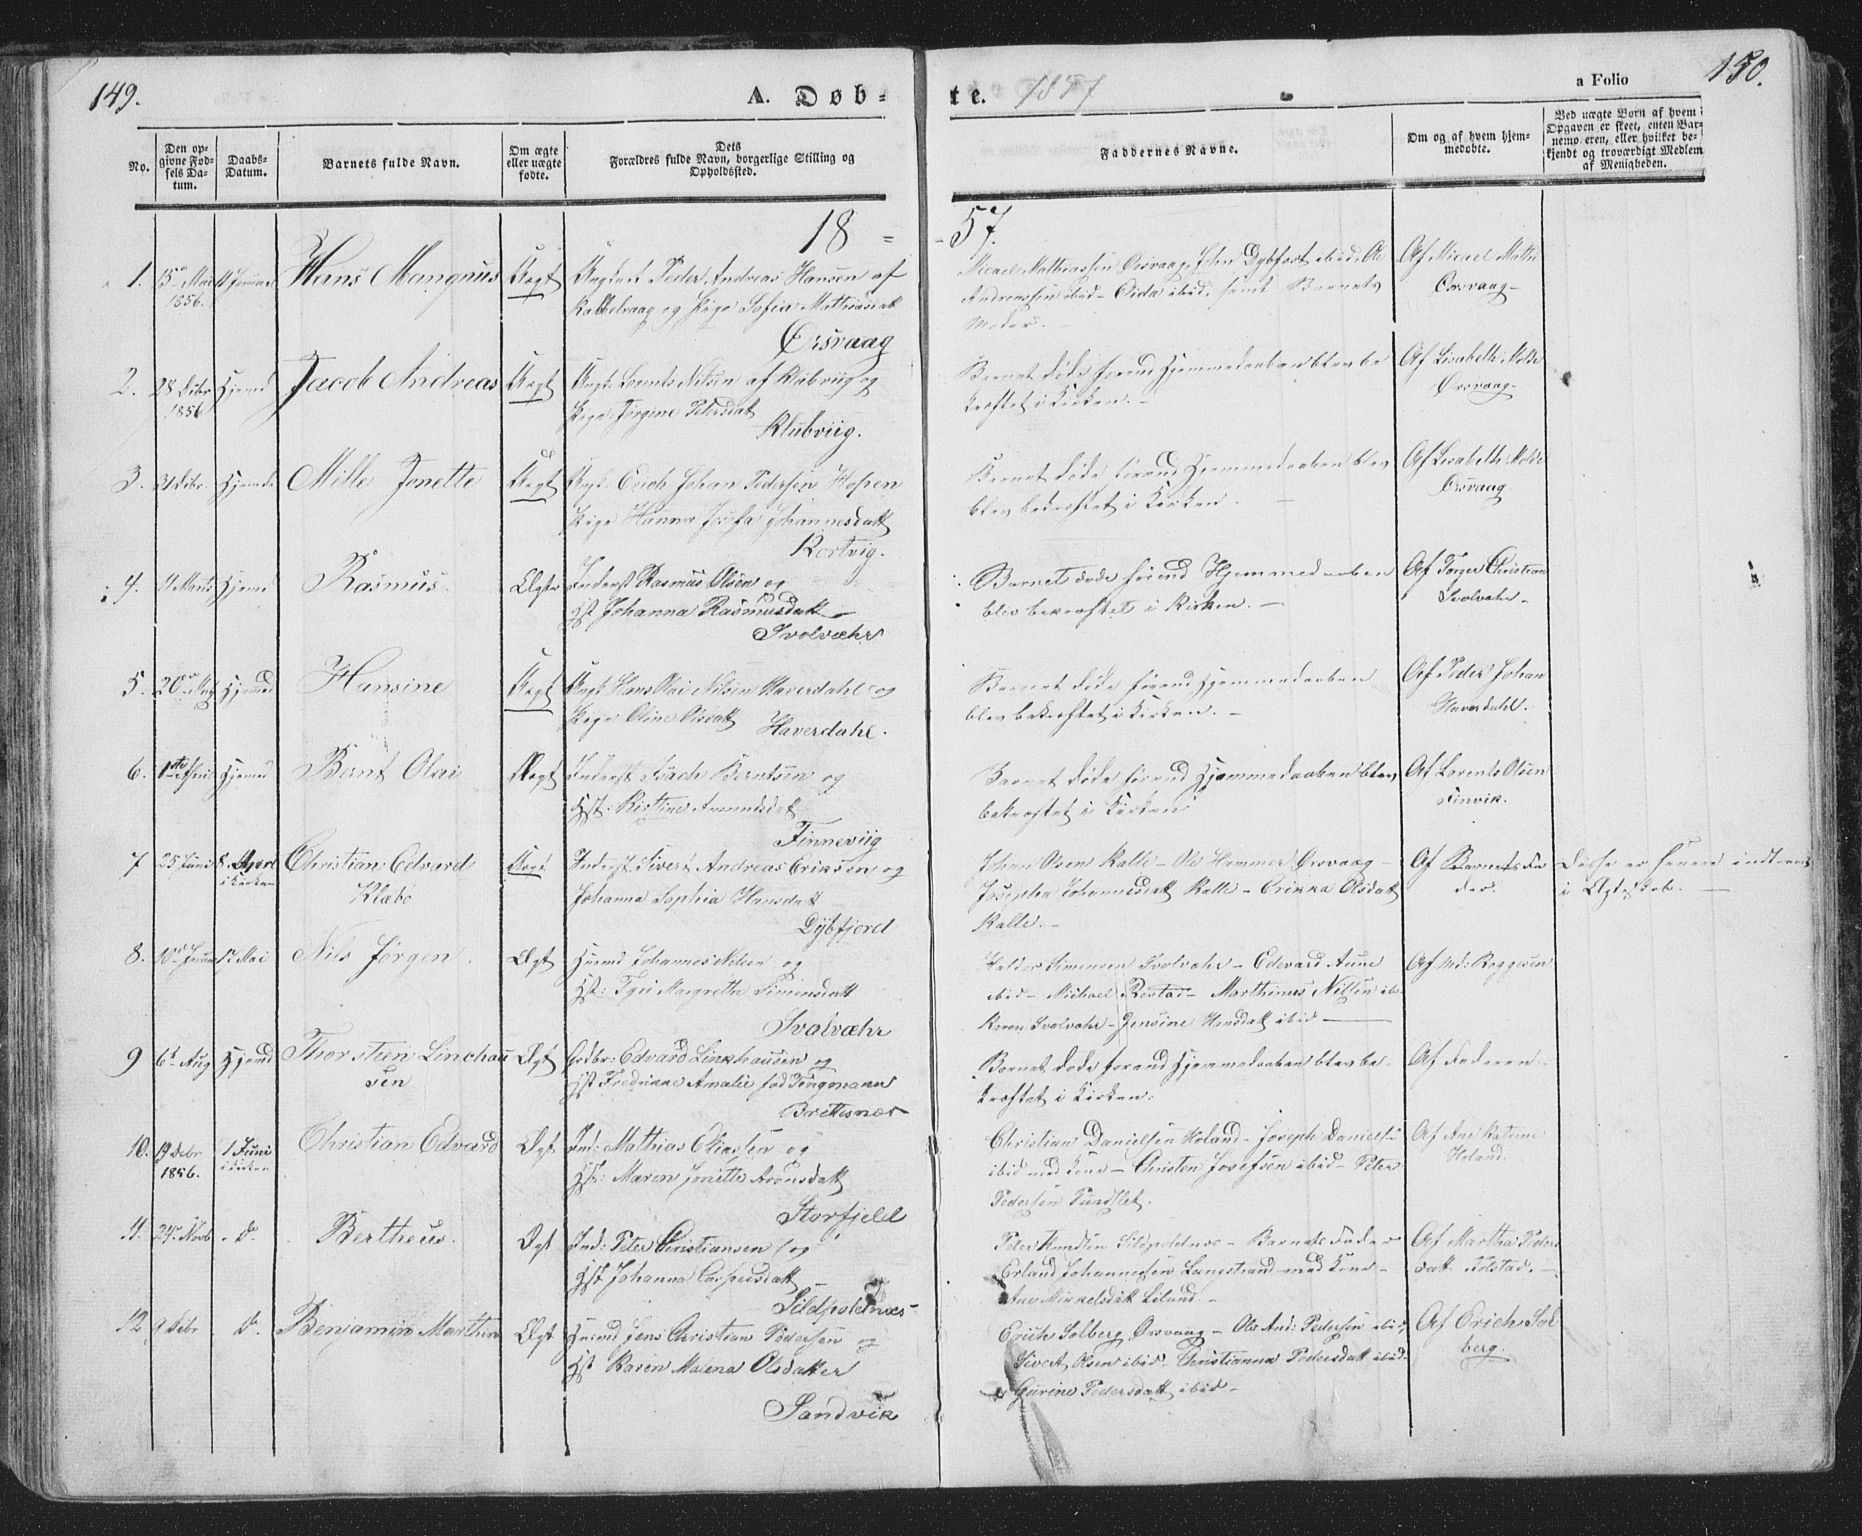 149.
A. Døb=
te. 1857
a Folio
150.
No.
Den opgivne Fødsels Datum.
Daabs-Datum.
Barnets fulde Navn.
Om ægte eller uægte fødte.
Dets Forældres fulde Navn, borgerlige Stilling og Opholdssted.
Faddernes Navne.
Om og af hvem hjemmedøbte.
Ved uægte Børn af hvem Opgaven er skeet, enten Barnemoderen, eller hvilket bekjendt og troværdigt Medlem af Menigheden.
18 =
- 57.
1.
1856.
Hans Magnus
Uægt
Ungkarl Peder Andreas Hansen af
Kabbelvaag og Pige Sofia Mathiasdatt
Ørsvaag
Micael Mathiassen Ørsvaag, John Dybfest ibid. Ole
Andreassen ibid - Oida ibid. samt Barnets
Moder. -
Af Micael Mathi
Ørsvaag -
2.
28 Debr
1856
Hjemd
Jacob Andreas
Uægt
Ungk. Lorents Nilsen af Klubviig og
Pige Jørgine Petersdat
Klubviig.
Barnet døde førend Hjemmedaaben blev be
kræftet i Kirken. -
Af Lisabeth Molde
Ørsvaag -
3.
31 Debr.
Hjemd
Mille Jonette
Uægt
Ungk. Erich Johan Pedersen Hopen
Pige Hanna Josefa Johannesdatt
Kortvig.
Barnet døde førend Hjemmedaaben blev
blev bekræftet i Kirken. -
Af Lisabeth Molde
Ørsvaag
4.
11 Marts
Hjemd
Rasmus
Ægte
Inderst Rasmus Olsen og
Hst Johanna Rasmusdatt -
Svolvæhr
Barnet døde førend Hjemmedaaben
blev bekræftet i Kirken. -
Af Torger Christian
Svolvæhr -
5.
Hjemd
Hansine
Uægt
Ungk Hans Olai Nilsen Haverdahl og
Pige Oline Olsdatt
Haverdahl.
Barnet døde førend Hjemmedaaben
blev bekræftet i Kirken. -
Af Peder Johan
Haverdahl.
6.
Hjemd
Bernt Olai
Ægt
Inderst Isach Berntsen og
Hst: Kistine Amundsdat
Finneviig
Barnet døde førend Hjemmedaaben blev
bekræftet i Kirken
Af Lorents Olsen
Finvik.
7
25 Juni
i Kirken
Christian Edvard
Klæbo
Uægt
Inderst Sivert Andreas Eriksen og
Johanna Sophia Hansdatt
Dybfjord
Johan Olsen Kalle - Ole Hammer Ørsvaag -
Josepha Johannesdatt Kalle - Erikka Olsdatt
Kalle. -
Af Barnets Fa
der.
Disse er senere indtraadt
i Ægteskab. -
8.
Nils Jørgen.
Ægt
Huusmd Johannes Nilsen og
Hst: Tyri Margrethe Simonsdatt
Svolvæhr
Haldor Simensen Svolvæhr - Edevard Aune
ibid - Michael Røstad - Marthinus Nilsen ib
Karen Svolvæhr - Jensine Hansdatt ibid -
Af Md: Roggesen
9
6t Aug
Hjemd
Thorstein Linchau
sen
Ægt
Gdbr: Edvard Linkhausen og
Hst Fredrikke Amalie fød Tengmann
Brettesnæs
Barnet døde førend Hjemmedaaben blev be-
kræftet i Kirken.
Af Faderen -
10.
19 Debr
1856.
1 Juni
i Kirken
Christian Edvard
Ægt
Ind: Mathias Eliassen og
Hst: Maren Jonette Aronsdatt
Storfjeld
Christian Danielsen Holand - Joseph Daniels
ibid med Kone - Christen Josefsen ibid - Peter
Pedersen Pundslet.
Af Ane Katrine
Holand.
11.
24 Novb
- d.
Bertheus.
Ægt
Ind: Peter Christiansen og
Hst Johanna Caspersdatt
Sildpolnæs -
Peter Knudsen Sildpolnæs - Barnets Fader
Erland Johannesen Langstrand med Kone -
Ane Mikkelsdatt Liland. -
Af Martha Peders
datt Rolstad. -
12
9 Debr
d.
Benjamin Marthin
Ægt
Huusmd Jens Christian Pedersen og
Hst Karen Malena Olsdatter
Sandvik
Erich Solberg Ørsvaag - Ole And: Pedersen ibid,
Sivert Olsen ibid - Christianna Pedersdatt ibid -
Gurine Pedersdatt ibid -
Af Erich Sol
berg.